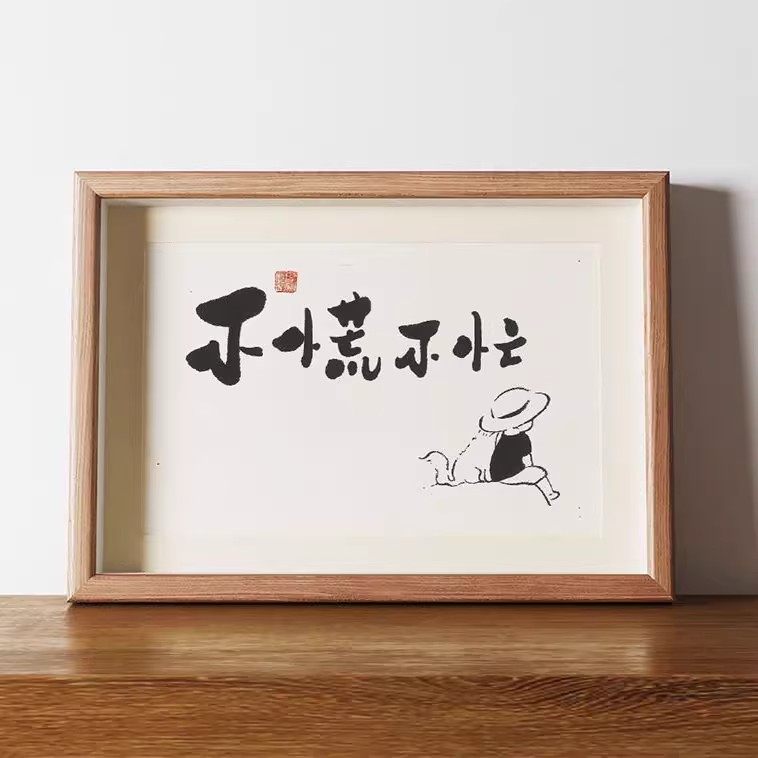 不慌不忙